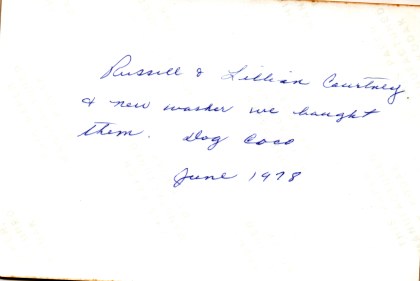 Russell & Lillian Courtney.
& new washer we bought
them. Dog Coco
June 1978